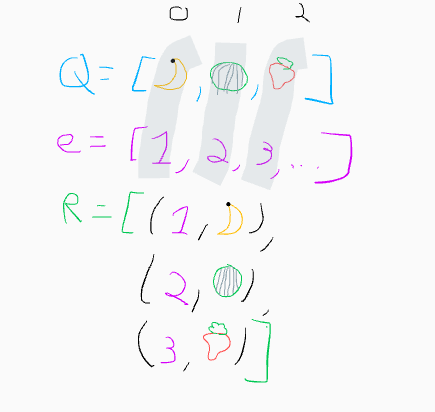 0 1 2
Q = [ , , ]
e = [1, 2, 3, ...]
R = [(1, ),
(2, ),
(3, )]